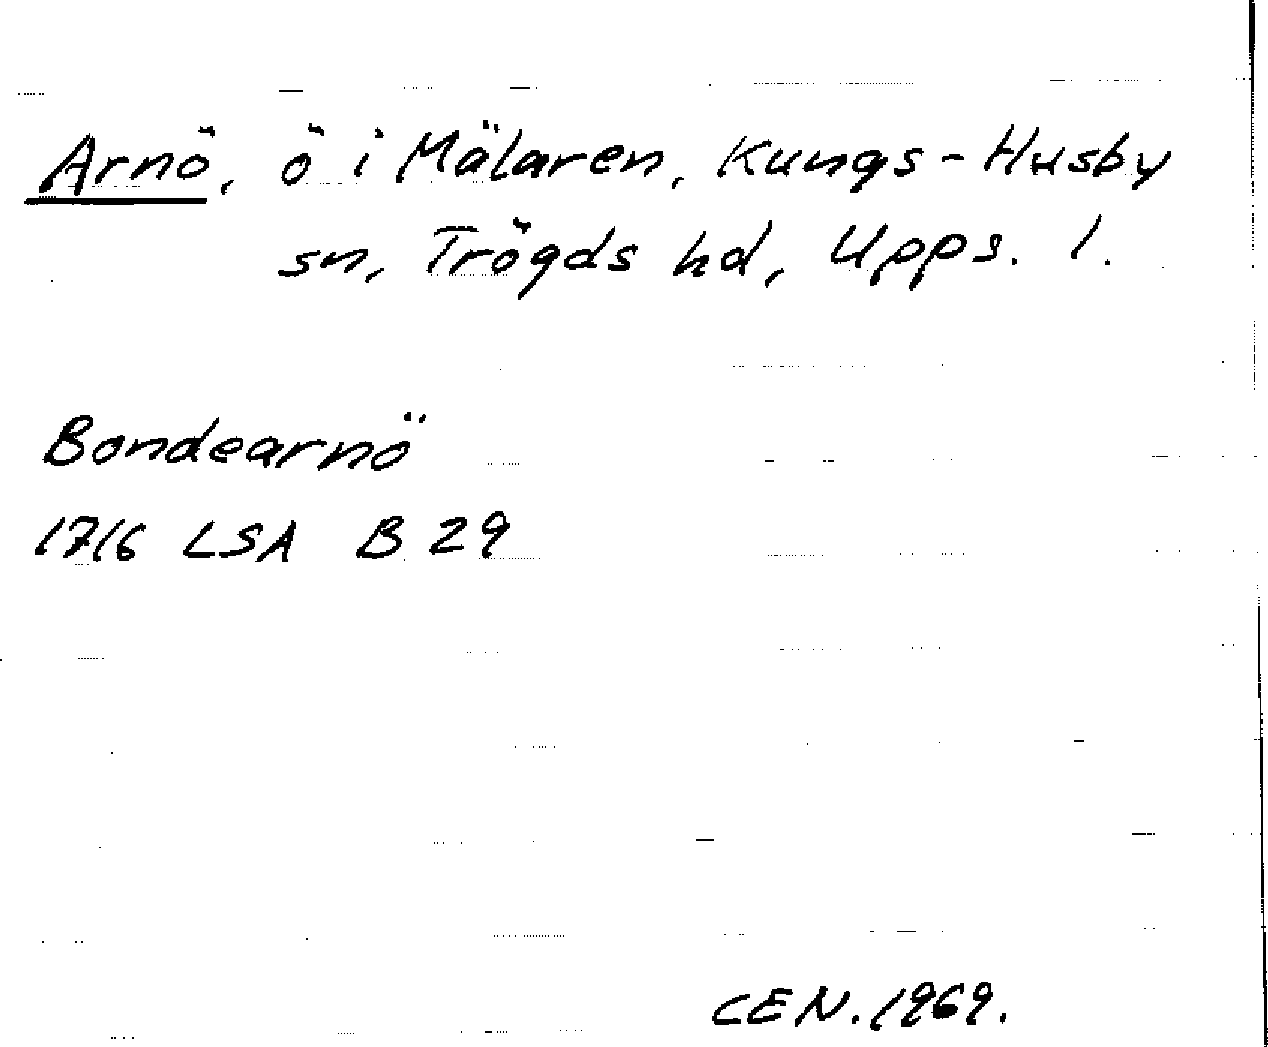 Arnö, ö i Mälaren, Kungs-Husby
sn, Trögds hd, Upps. l.
Bondearnö
1716 LSA B 29
CEN. 1969.